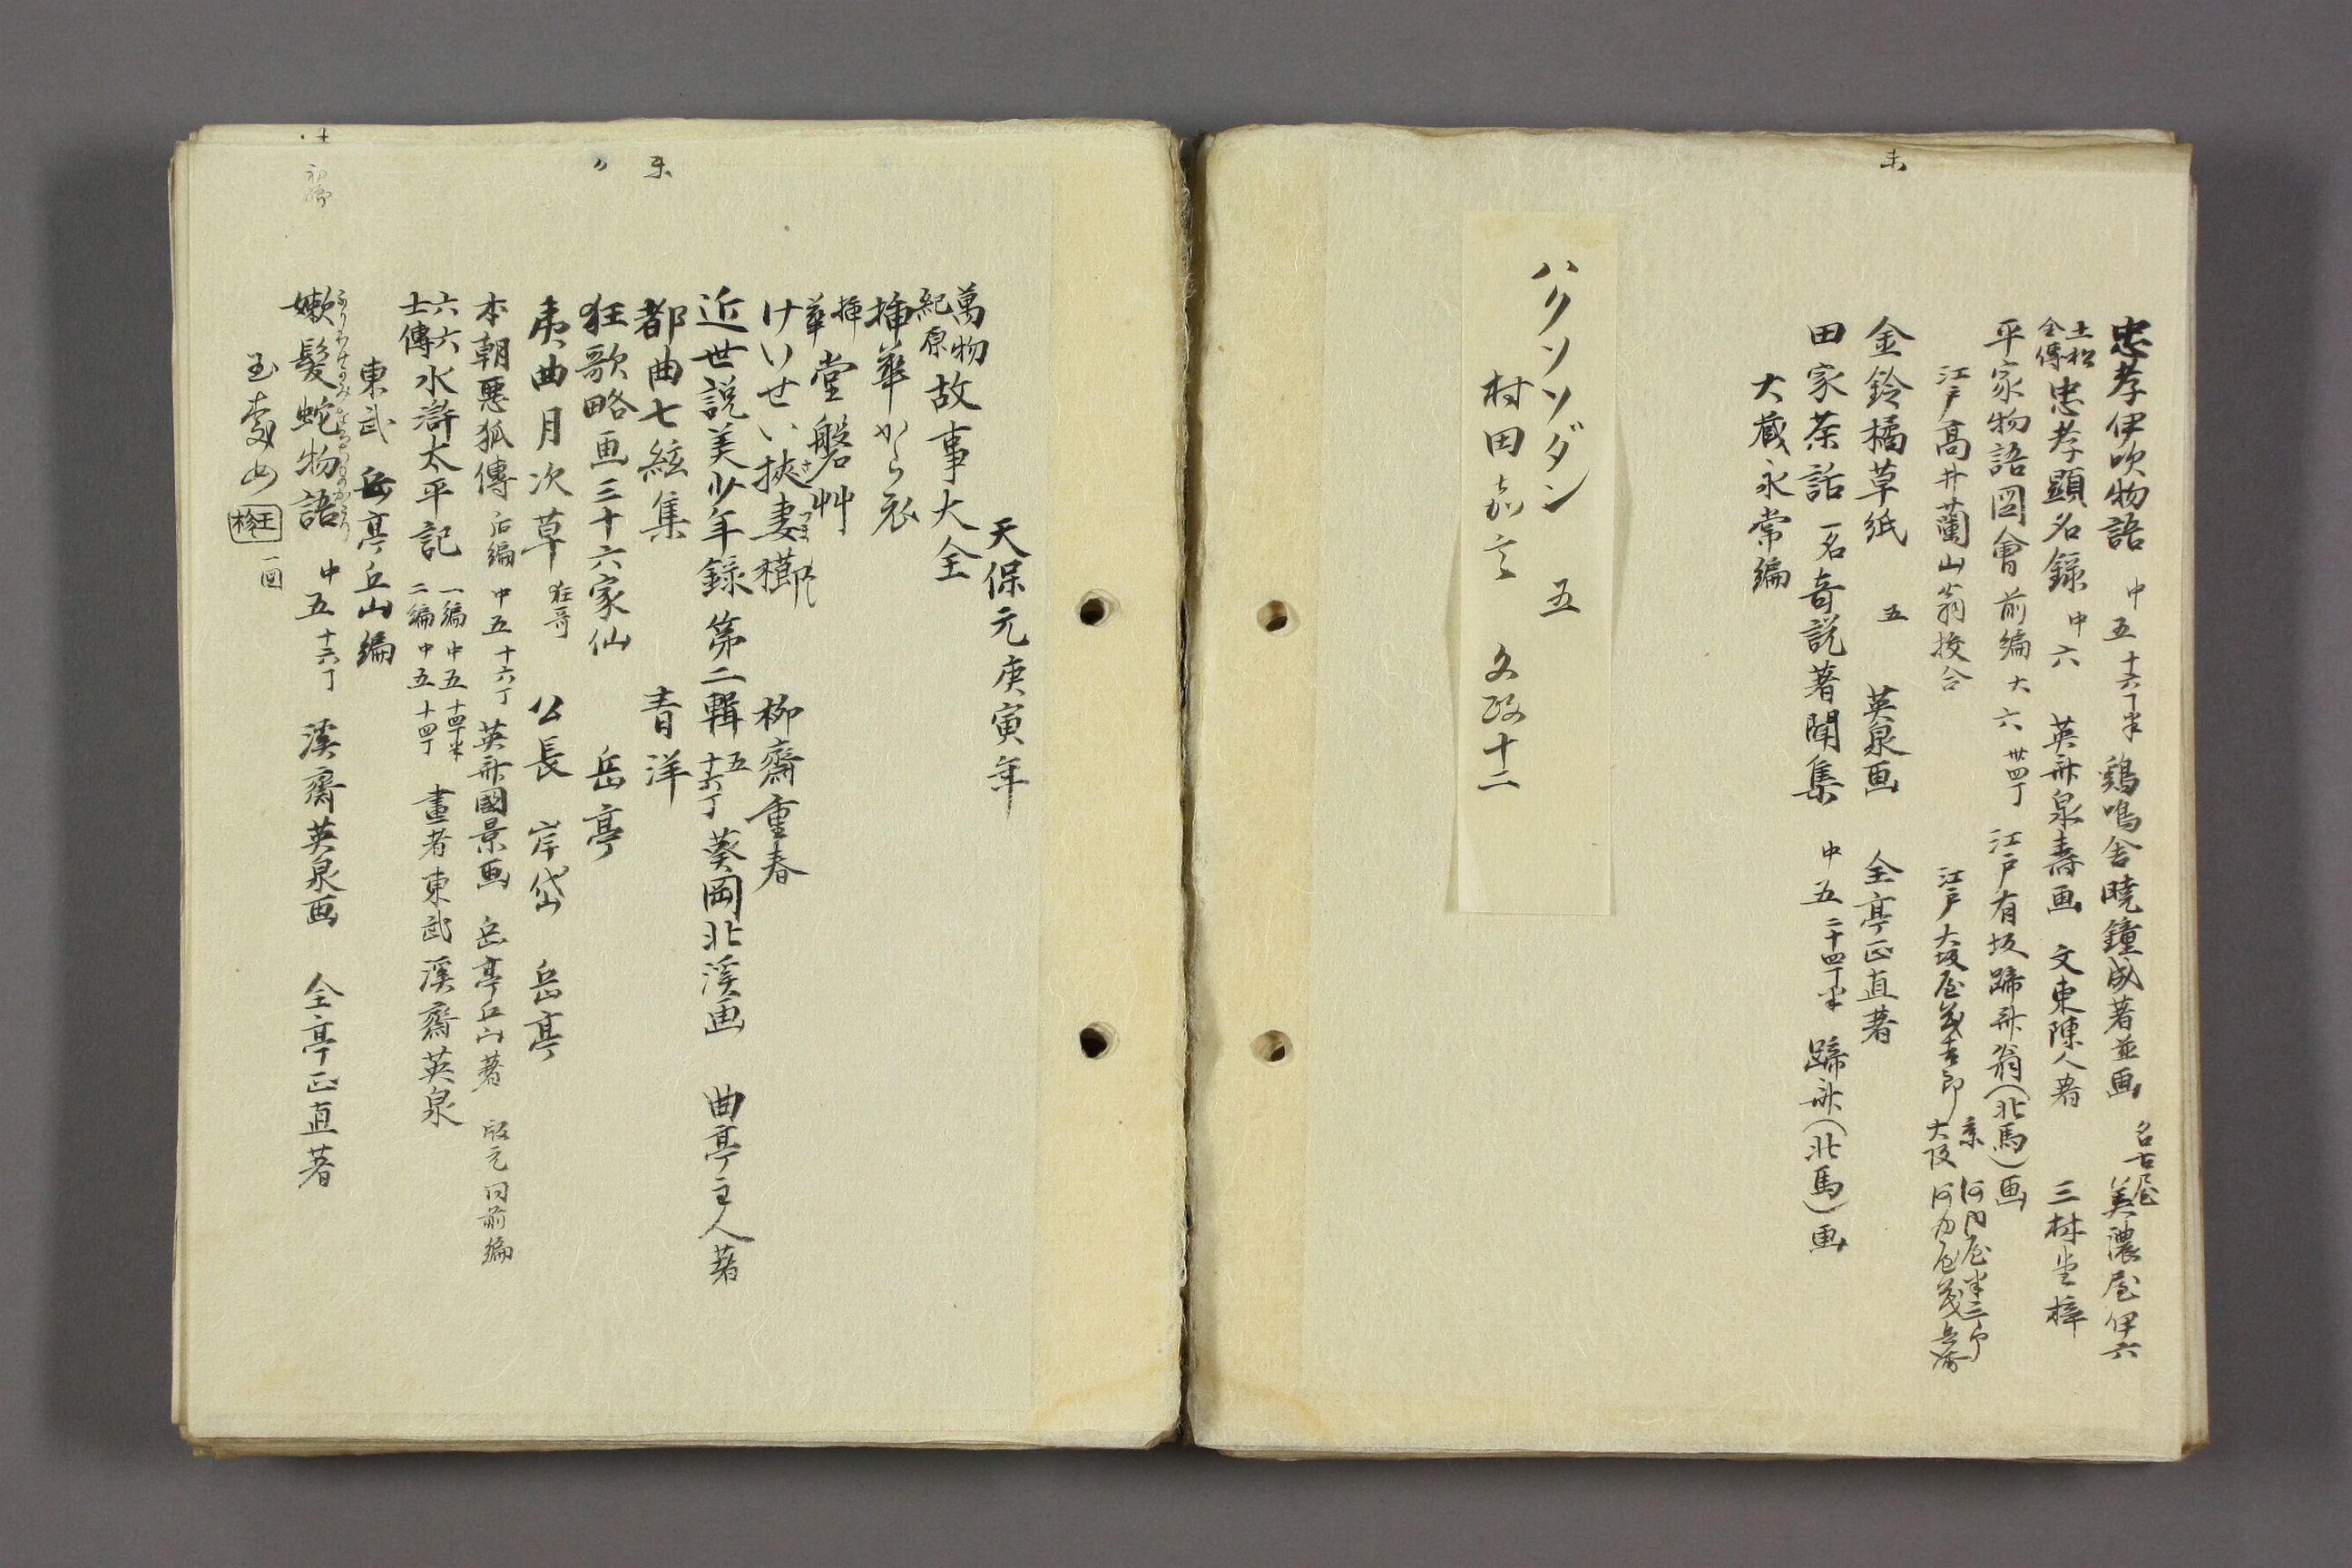 未
忠孝伊吹物語 中五 十六丁半 鶏鳴舎暁鐘成著並画 名古屋 美濃屋伊六
忠孝顕名録 中六 英舟泉壽画 文東陳人著 三林堂梓
平家物語図會 前編 大六 卅四丁 江戸有坂蹄斎翁(北馬)画
江戸高井蘭山翁校合 江戸大坂屋茂吉郎 京 河内屋半三郎 大阪 河内屋茂兵衛
金鈴橘草紙 五 英泉画 全亭正直著
田家茶話 一名奇説著聞集 中五 二十四丁半 蹄斎(北馬)画
大蔵永常編
ハクソソダン 五
村田嘉言 文政十二
未
〃
天保元庚寅年
萬物紀原 故事大全
挿華から衣
挿華 堂磐艸
けいせい挾妻櫛 柳齋重春
近世説美少年録 第二輯 五 十六丁 葵岡北渓画 曲亭主人著
都曲七絃集 青洋
狂歌略画三十六家仙 岳亭
夷曲月次草 狂哥 公長 岸岱 岳亭
本朝悪狐傳 后編 中五 十六丁 英斎國景画 岳亭丘山著 版元同前編
六六士傳 水滸太平記 一編 中五 十四丁半 二編 中五 十四丁 畫者東武渓齋英泉
東武 岳亭丘山編
嫩髪蛇物語 中五 十六丁 渓齋英泉画 全亭正直著